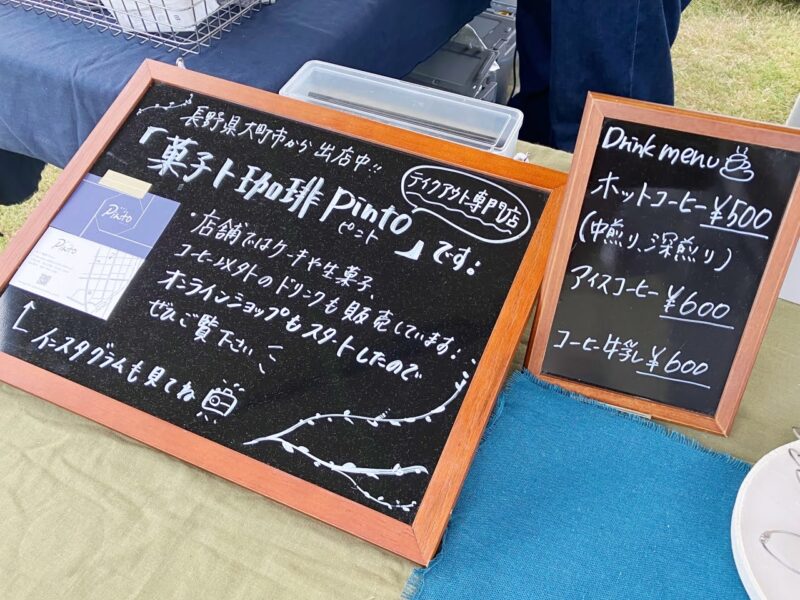 長野県大町市から出店中!!
「菓子ト珈琲 Pinto」です!
ピント
テイクアウト専門店
・店舗ではケーキや生菓子、
コーヒー以外のドリンクも販売しています!
オンラインショップもスタートしたので
ぜひご覧下さい
インスタグラムも見てね
Pinto
Pinto
Drink menu
ホットコーヒー ¥500
(中煎り、深煎り)
アイスコーヒー ¥600
コーヒー牛乳 ¥600